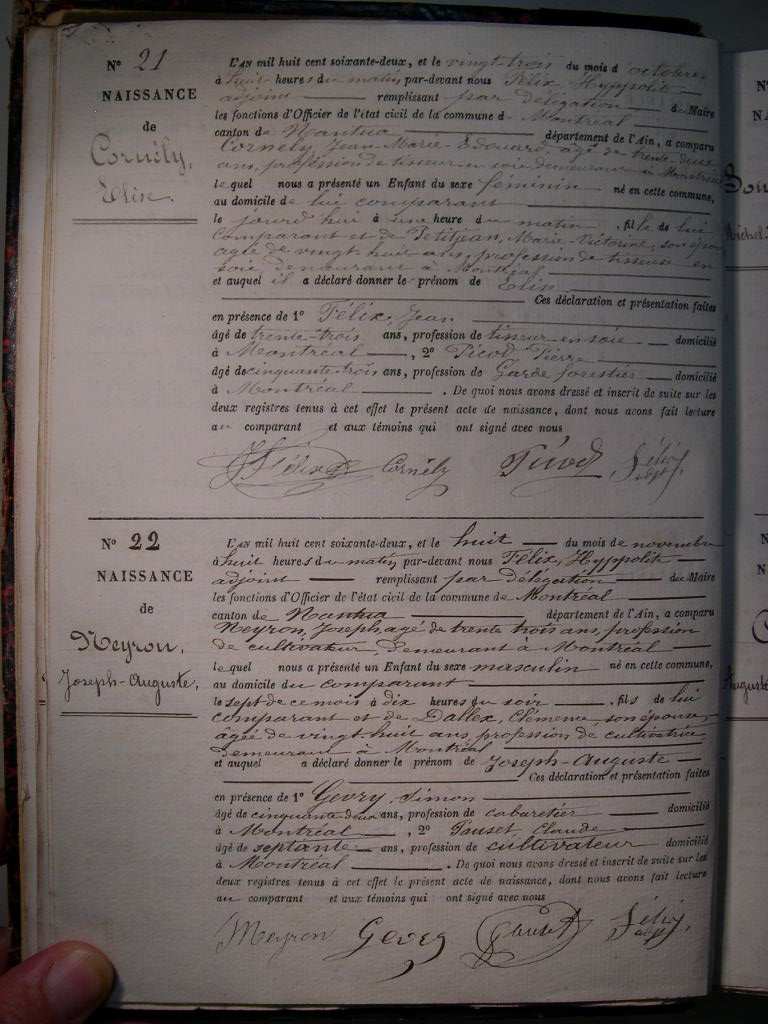 Nº 21
NAISSANCE
de
Cornély,
Elise.
L'AN mil huit cent soixante-deux, et le vingt-trois du mois d'octobre
à huit heures du matin, par-devant nous Félix, Hyppolite
adjoint remplissant par délégation du Maire
les fonctions d'Officier de l'état civil de la commune de Montréal
canton de Nantua département de l'Ain, a comparu
Cornély, Jean-Marie-Edouard, âgé de trente-deux
ans, profession de tisseur en soie demeurant à Montréal
lequel nous a présenté un Enfant du sexe féminin né en cette commune,
au domicile de lui comparant
le jourd'hui à une heure du matin, fille de lui
comparant et de Petitjean, Marie-Victorine, son épouse
agée de vingt-huit ans, profession de tisseuse en
soie, demeurant à Montréal
et auquel il a déclaré donner le prénom de Elise
Ces déclaration et présentation faites
en présence de 1º Félix, Jean
âgé de trente-trois ans, profession de tisseur en soie domicilié
à Montréal, 2º Picod Pierre
âgé de cinquante-trois ans, profession de Garde forestier domicilié
à Montréal. De quoi nous avons dressé et inscrit de suite sur les
deux registres tenus à cet effet le présent acte de naissance, dont nous avons fait lecture
au comparant et aux témoins qui ont signé avec nous
Félix Cornély Picod Félix adjt
Nº 22
NAISSANCE
de
Neyron,
Joseph-Auguste,
L'AN mil huit cent soixante-deux, et le huit du mois de novembre
à huit heures du matin, par-devant nous Félix, Hyppolite
adjoint remplissant par délégation du Maire
les fonctions d'Officier de l'état civil de la commune de Montréal
canton de Nantua département de l'Ain, a comparu
Neyron, Joseph, agé de trente trois ans, profession
de cultivateur, demeurant à Montréal
lequel nous a présenté un Enfant du sexe masculin né en cette commune,
au domicile du comparant
le sept de ce mois à dix heures du soir, fils de lui
comparant et de Dallex, Clémence, son épouse,
âgée de vingt huit ans, profession de cultivatrice,
demeurant à Montréal
et auquel a déclaré donner le prénom de Joseph-Auguste
Ces déclaration et présentation faites
en présence de 1º Gevry, Simon
âgé de cinquante deux ans, profession de cabaretier domicilié
à Montréal, 2º Pauset, Claude
âgé de septante ans, profession de cultivateur domicilié
à Montréal. De quoi nous avons dressé et inscrit de suite sur les
deux registres tenus à cet effet le présent acte de naissance, dont nous avons fait lecture
au comparant et aux témoins qui ont signé avec nous
Meyron Gevry Pauset Félix adjt